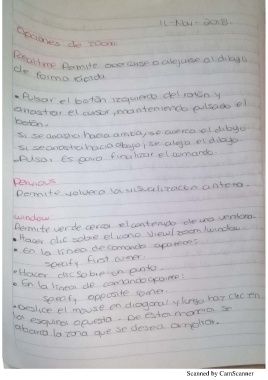 11-Nov-2018
Opciones de zoom
Realtime Permite acercarse o alejarse al dibujo
de forma rápida.
• Pulsar el botón izquierdo del ratón y
arrastrar el cursor, manteniendo pulsado el
botón.
Si se arrastra hacia arriba, se acerca el dibujo.
Si se arrastra hacia abajo, se aleja el dibujo.
Pulsar Esc para finalizar el comando.
Previous
Permite volver a la visualización anterior.
Window
Permite ver de cerca el contenido de una ventana.
• Hacer clic sobre el icono View/zoom/window
• En la línea de comando aparece:
specify first corner:
• Hacer clic sobre un punto.
• En la línea de comando aparece:
specify opposite corner:
• Deslice el mouse en diagonal y luego haz clic en
la esquina opuesta. De esta manera se
abarca la zona que se desea ampliar.
Scanned by CamScanner